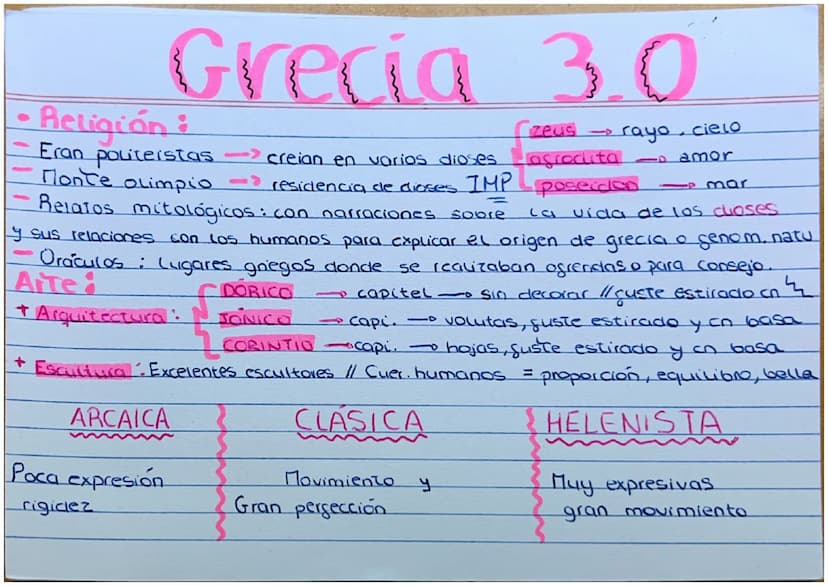 Grecia 3.0
• Religión:
- Eran politeistas → creian en varios dioses
zeus → rayo, cielo
afrodita → amor
poseidon → mar
- Monte olimpio → residencia de dioses IMP
- Relatos mitológicos: con narraciones sobre la vida de los dioses
y sus relaciones con los humanos para explicar el origen de grecia o fenom. natu
- Oráculos: lugares griegos donde se realizaban ofrendas o para consejo.
Arte:
+ Arquitectura:
DÓRICO → capitel → sin decorar // fuste estirado cn
JÓNICO → capi. → volutas, fuste estirado y cn basa
CORINTIO → capi. → hojas, fuste estirado y cn basa
+ Escultura: Excelentes escultores // Cuer. humanos = proporción, equilibro, bella
ARCAICA CLÁSICA HELENISTA
Poca expresión Movimiento y Muy expresivas
rigidez Gran perfección gran movimiento